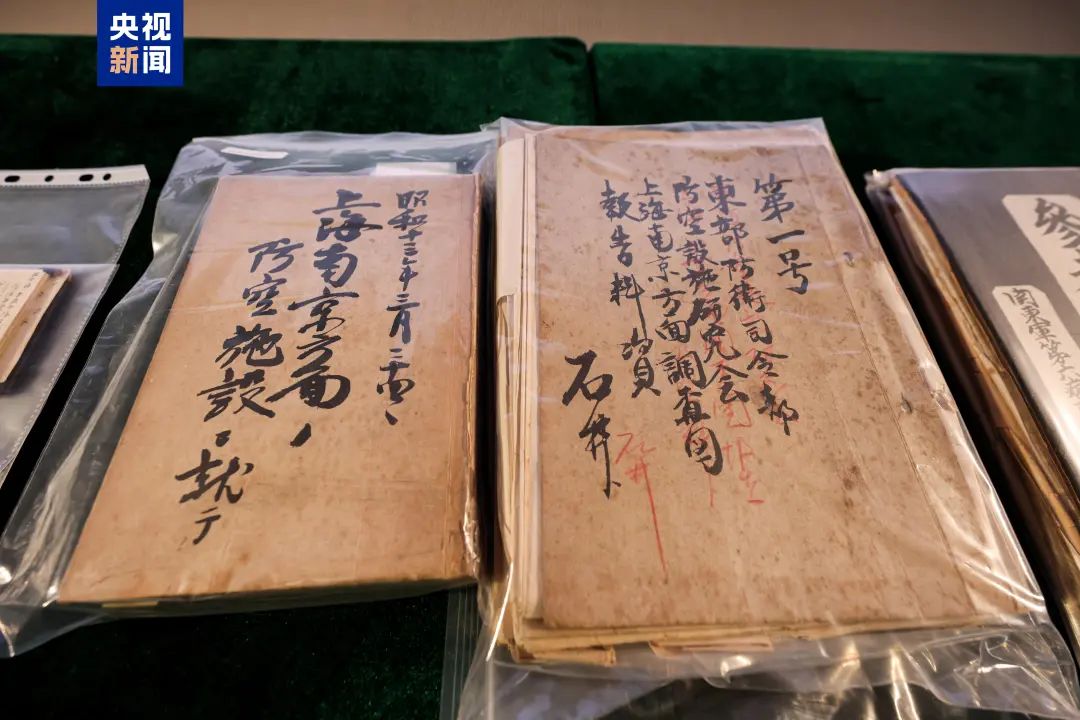 央视
新闻
昭和十三年三月二十四、
上海南京方面ノ
防空施設
ニ就テ
第一号
東部防衛司令部
防空設施研究会
上海南京方面調査団
報告料資
石井
石井
参
関東軍第